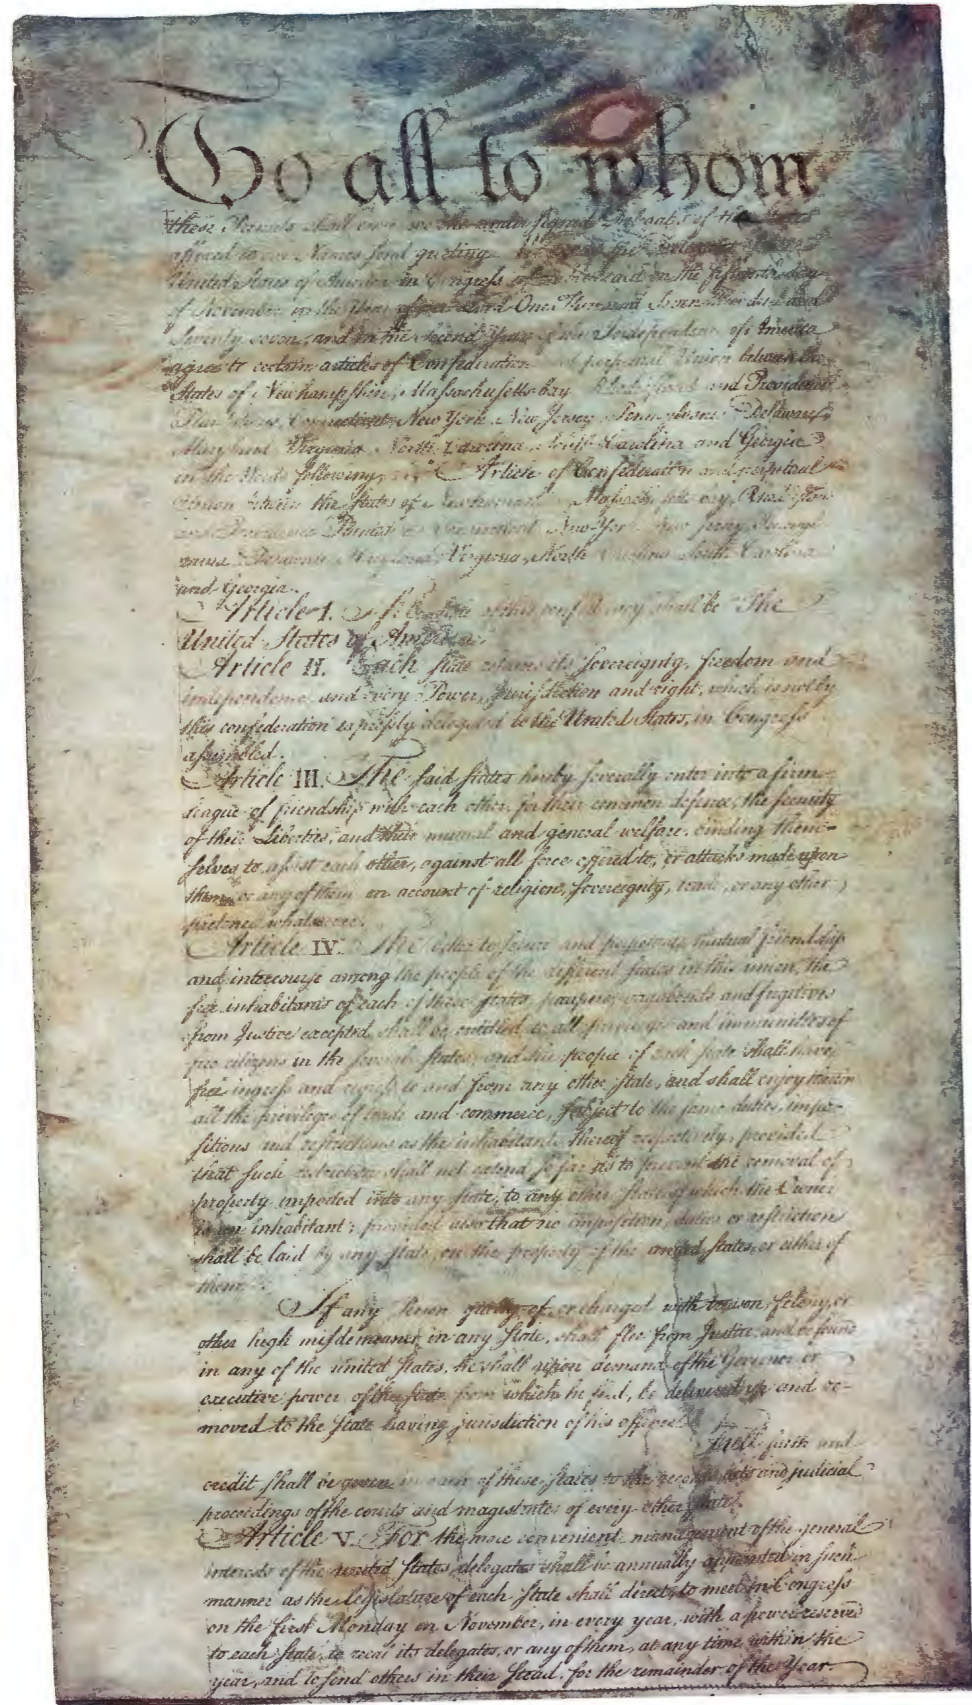 To all to whom
these Presents shall come, we the under signed Delegates of the States
affixed to our Names send greeting. Whereas the Delegates of the
United States of America in Congress assembled did on the fifteenth day
of November in the Year of our Lord One Thousand Seven Hundred and
Seventy seven, and in the Second Year of the Independence of America
agree to certain articles of Confederation and perpetual Union between the
States of Newhampshire, Massachusetts-bay Rhodeisland and Providence
Plantations, Connecticut, New York, New Jersey, Pennsylvania, Delaware,
Maryland, Virginia, North Carolina, South Carolina and Georgia
in the Words following, Article of Confederation and perpetual
Union between the States of Newhampshire, Massachusetts-bay, Rhodeisland
and Providence Plantations, Connecticut, New York, New Jersey, Pennsyl-
vania, Delaware, Maryland, Virginia, North Carolina, South Carolina
and Georgia.
Article I. The of this confederacy shall be "The
United States of America."
Article II. Each state retains its sovereignty, freedom and
independence, and every Power, Jurisdiction and right, which is not by
this confederation expressly delegated to the United States, in Congress
assembled.
Article III. The said states hereby severally enter into a firm
league of friendship with each other, for their common defence, the security
of their Liberties, and their mutual and general welfare, binding them-
selves to assist each other, against all force offered to, or attacks made upon
them, or any of them, on account of religion, sovereignty, trade, or any other
pretence whatever.
Article IV. The better to secure and perpetuate mutual friendship
and intercourse among the people of the different states in this union, the
free inhabitants of each of these states, paupers, vagabonds and fugitives
from Justice excepted, shall be entitled to all privileges and immunities of
free citizens in the several states; and the people of each state shall have
free ingress and regress to and from any other state, and shall enjoy therein
all the privileges of trade and commerce, subject to the same duties, impo-
sitions and restrictions as the inhabitants thereof respectively, provided
that such restriction shall not extend so far as to prevent the removal of
property imported into any state, to any other state, of which the Owner
is an inhabitant; provided also that no imposition, duties or restriction
shall be laid by any state, on the property of the united states, or either of
them.
If any Person guilty of, or charged with treason, felony, or
other high misdemeanor in any state, shall flee from Justice, and be found
in any of the united states, he shall upon demand of the Governor or
executive power, of the state from which he fled, be delivered up and re-
moved to the state having jurisdiction of his offence.
Full faith and
credit shall be given in each of these states to the records, acts and judicial
proceedings of the courts and magistrates of every other state.
Article V. For the more convenient management of the general
interests of the united states, delegates shall be annually appointed in such
manner as the legislature of each state shall direct, to meet in Congress
on the first Monday in November, in every year, with a power reserved
to each state, to recal its delegates, or any of them, at any time within the
year, and to send others in their stead, for the remainder of the Year.